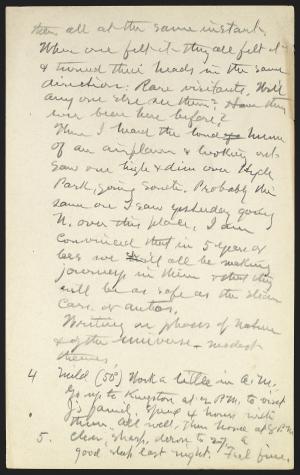 them, all at the same instant.
When one felt it they all felt it
& turned their heads in the same
direction. Rare visitants. Will
any one else see them? Have they
ever been here before?
Then I heard the loud hum
of an airplane & looking out
saw one high & dim over Hyde
Park, going South. Probably the
same one I saw yesterday going
N. over this place. I am
convinced that in 5 years or
less we shall all be making
journeys in them & that they
will be as safe as the steam
cars, or autos.
Writing on phases of nature
& of the universe - modest
themes
4 Mild (50°) Work a little in A.M.
Go up to Kingston at 2 P.M. to visit
J's family. Spend 4 hours with
them. All well. Then home at 8 P.M.
5. Clear, sharp, down to 27, a
good sleep last night. Feel fine.